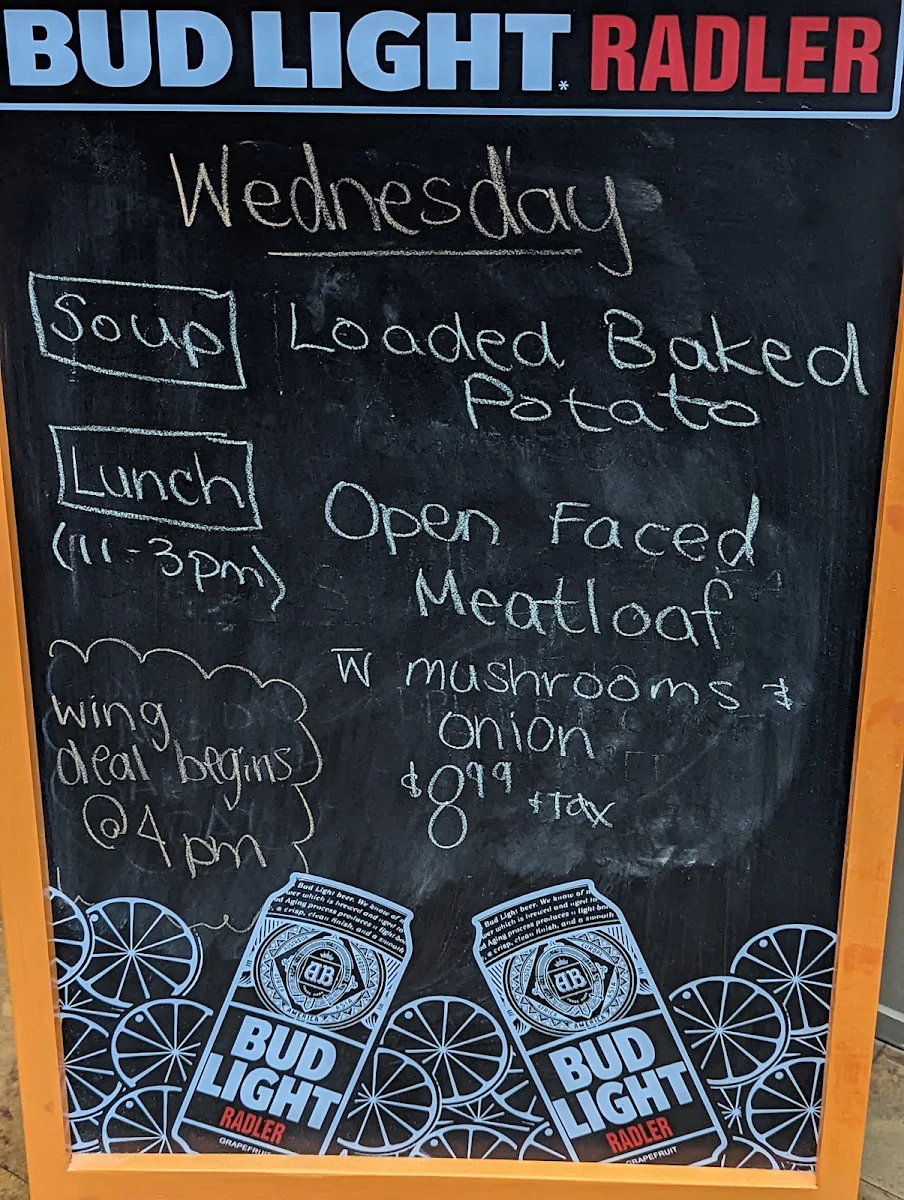 BUD LIGHT* RADLER
Wednesday
Soup Loaded Baked
Potato
Lunch
(11-3pm)
Open Faced
Meatloaf
w mushrooms &
onion
$8.99 +Tax
wing
deal begins
@ 4 pm
Bud Light beer. We know of n
wer which is brewed and aged to
od Aging process produces a light-bo
a crisp, clean finish, and a smooth
AMERICA
BUD
LIGHT
RADLER
GRAPEFRUIT
Bud Light beer. We know of n
wer which is brewed and aged to
od Aging process produces a light-bo
a crisp, clean finish, and a smooth
AMERICA
BUD
LIGHT
RADLER
GRAPEFRUIT